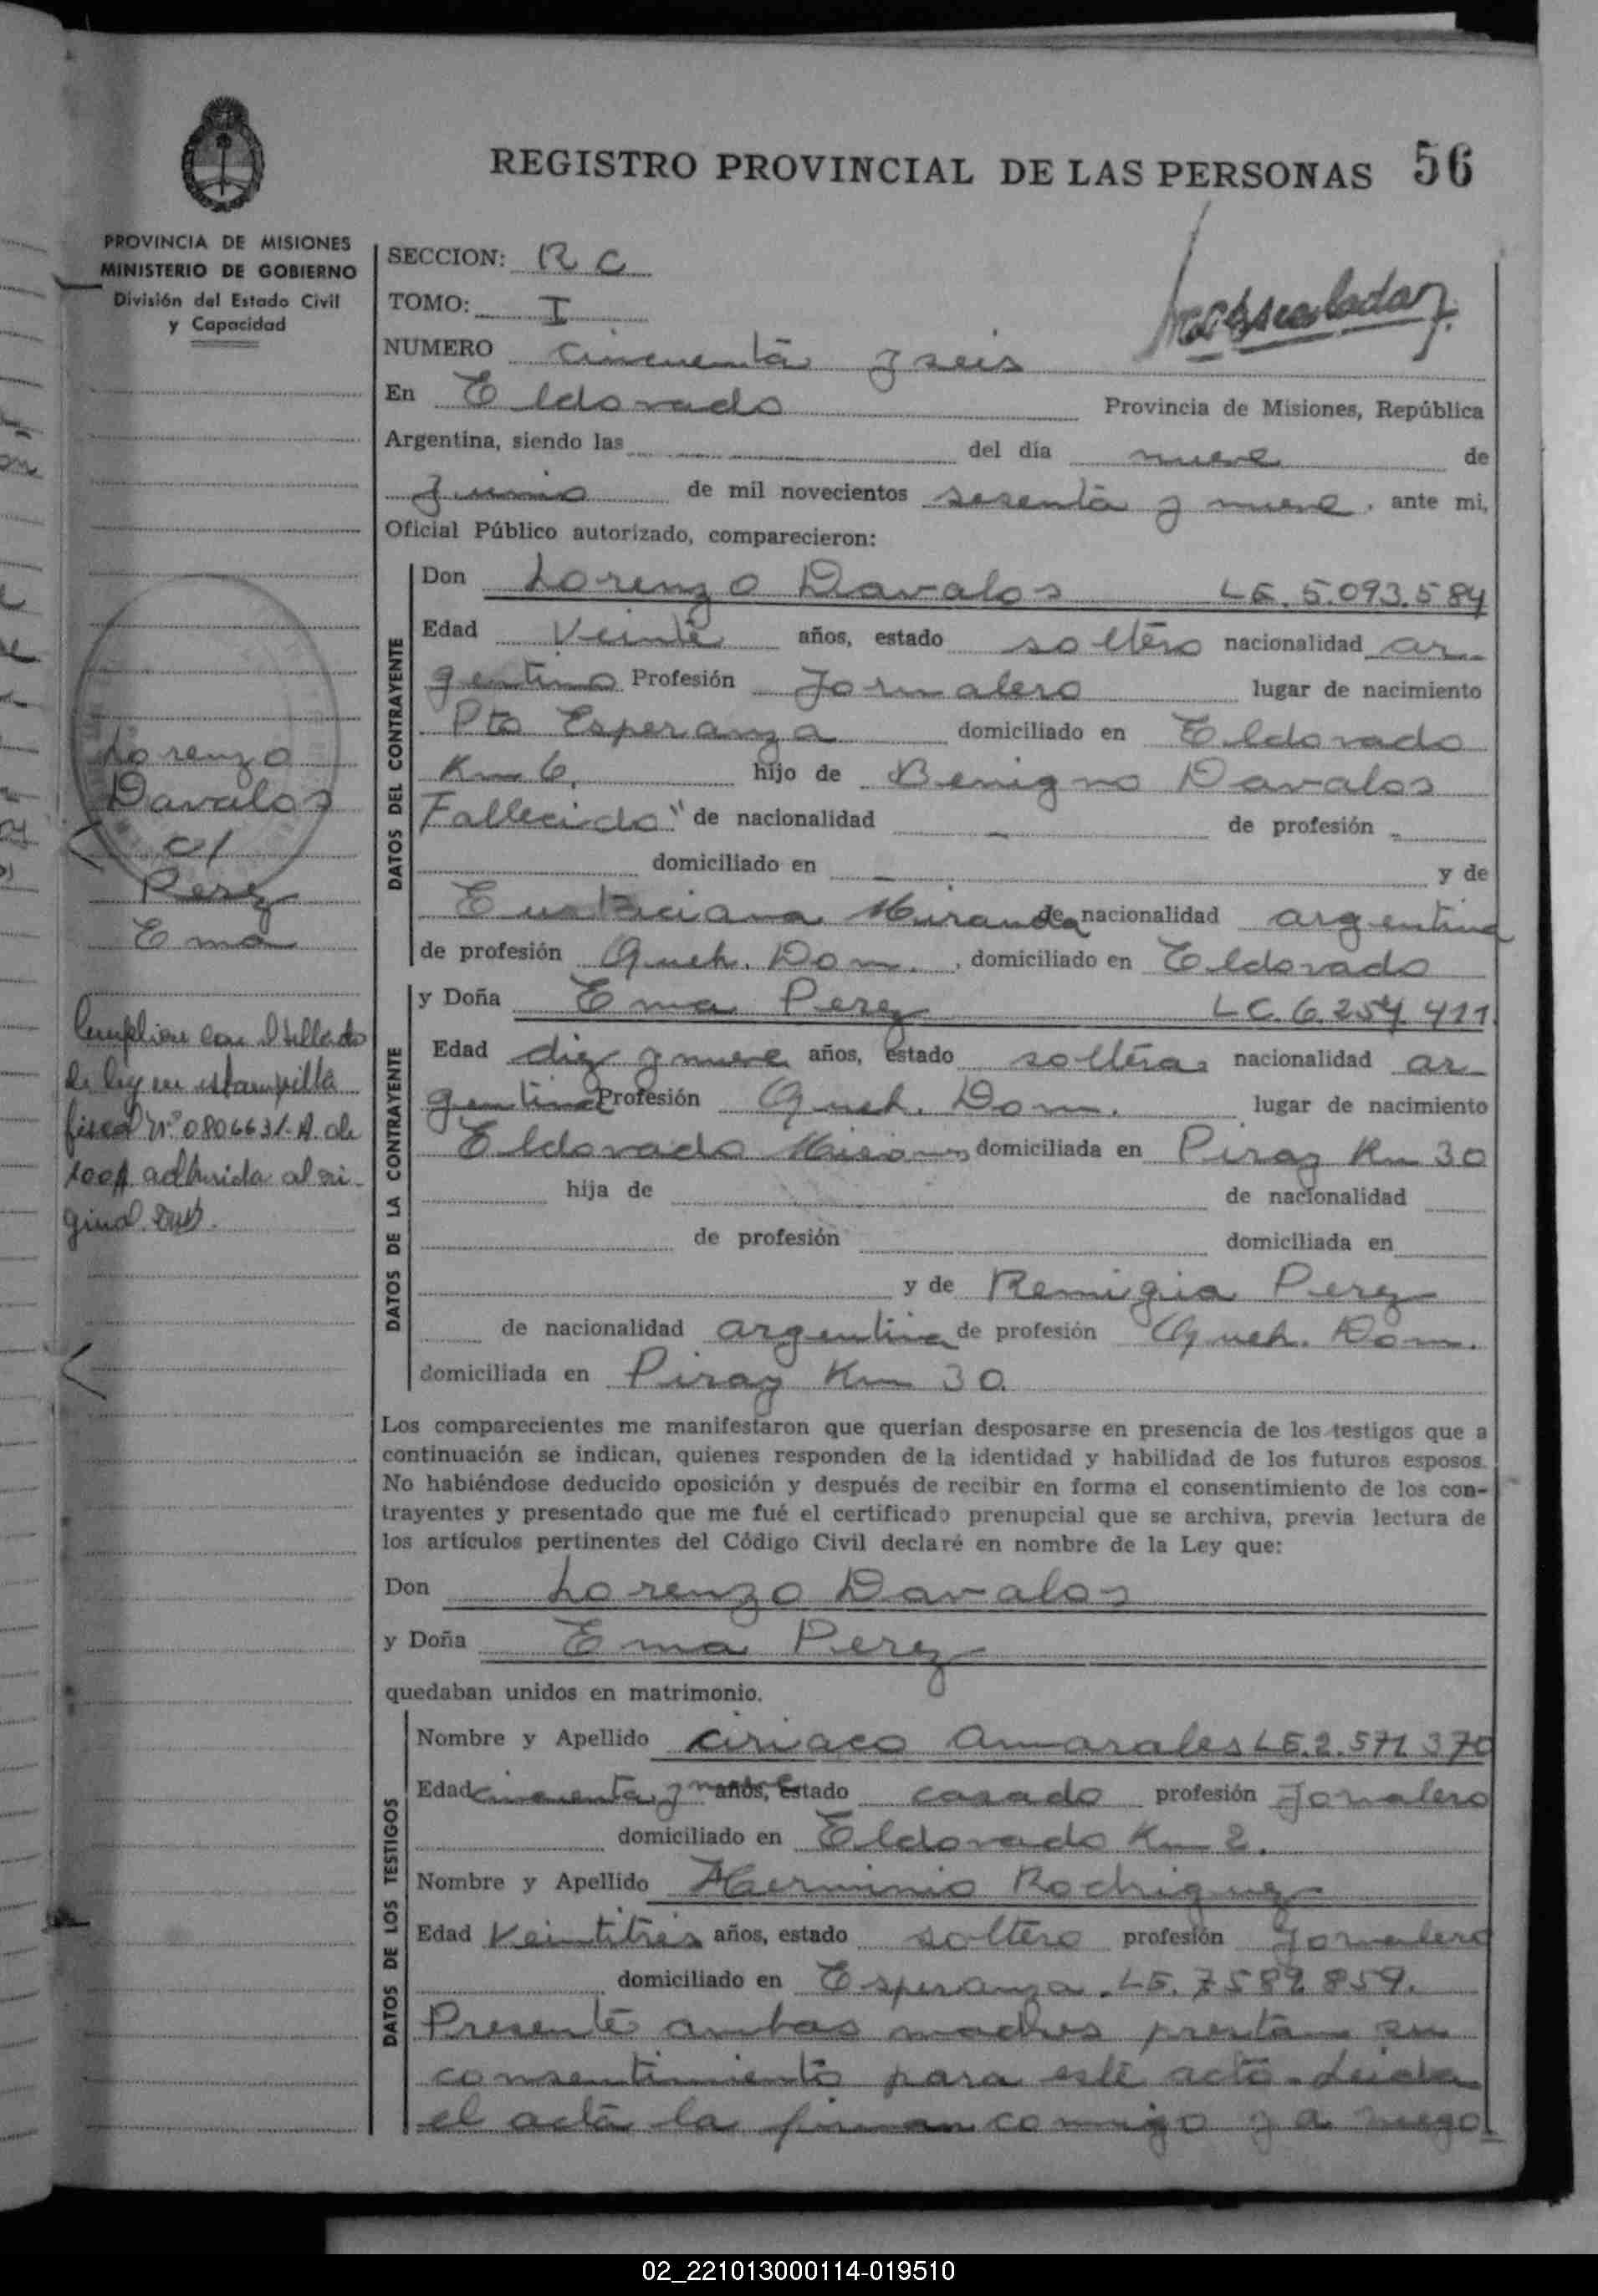 REGISTRO PROVINCIAL DE LAS PERSONAS 56
PROVINCIA DE MISIONES
MINISTERIO DE GOBIERNO
División del Estado Civil
y Capacidad
SECCION: R C
TOMO: I
NUMERO cincuenta y seis
En Eldorado Provincia de Misiones, República
Argentina, siendo las del día nueve de
Junio de mil novecientos sesenta y nueve, ante mi,
Oficial Público autorizado, comparecieron:
DATOS DEL CONTRAYENTE
Don Lorenzo Davalos LE. 5.093.584
Edad Veinte años, estado soltero nacionalidad ar
gentino Profesión Jornalero lugar de nacimiento
Pto Esperanza domiciliado en Eldorado
Km 6. hijo de Benigno Davalos
Fallecido" de nacionalidad - de profesión
domiciliado en y de
Miranda de nacionalidad argentina
de profesión Queh. Dom., domiciliado en Eldorado
Lorenzo
Davalos
c/
Perez
Ema
Cumplióse con Sellado
de ley en estampilla
fiscal nº 080663/-A. de
100$ adherida al ori-
ginal.
DATOS DE LA CONTRAYENTE
y Doña Ema Perez LC. 6.254 411.
Edad diez y nueve años, estado soltera nacionalidad ar
gentina Profesión Queh. Dom. lugar de nacimiento
Eldorado Misiones domiciliada en Piray Km 30
hija de de nacionalidad
de profesión domiciliada en
y de Remigia Perez
de nacionalidad argentina de profesión Queh. Dom.
domiciliada en Piray Km 30.
Los comparecientes me manifestaron que querían desposarse en presencia de los testigos que a
continuación se indican, quienes responden de la identidad y habilidad de los futuros esposos.
No habiéndose deducido oposición y después de recibir en forma el consentimiento de los con-
trayentes y presentado que me fué el certificado prenupcial que se archiva, previa lectura de
los artículos pertinentes del Código Civil declaré en nombre de la Ley que:
Don Lorenzo Davalos
y Doña Ema Perez
quedaban unidos en matrimonio.
DATOS DE LOS TESTIGOS
Nombre y Apellido Ciriaco Amarales LE. 2.571 370
Edad cincuenta y nueve años, estado casado profesión Jornalero
domiciliado en Eldorado Km 2.
Nombre y Apellido Herminio Rodriguez
Edad Veintitres años, estado soltero profesión Jornalero
domiciliado en Esperanza. LE. 7582859.
Presente ambas madres prestan su
consentimiento para este acto. Leida
el acta la firman conmigo y a ruego
02_221013000114-019510